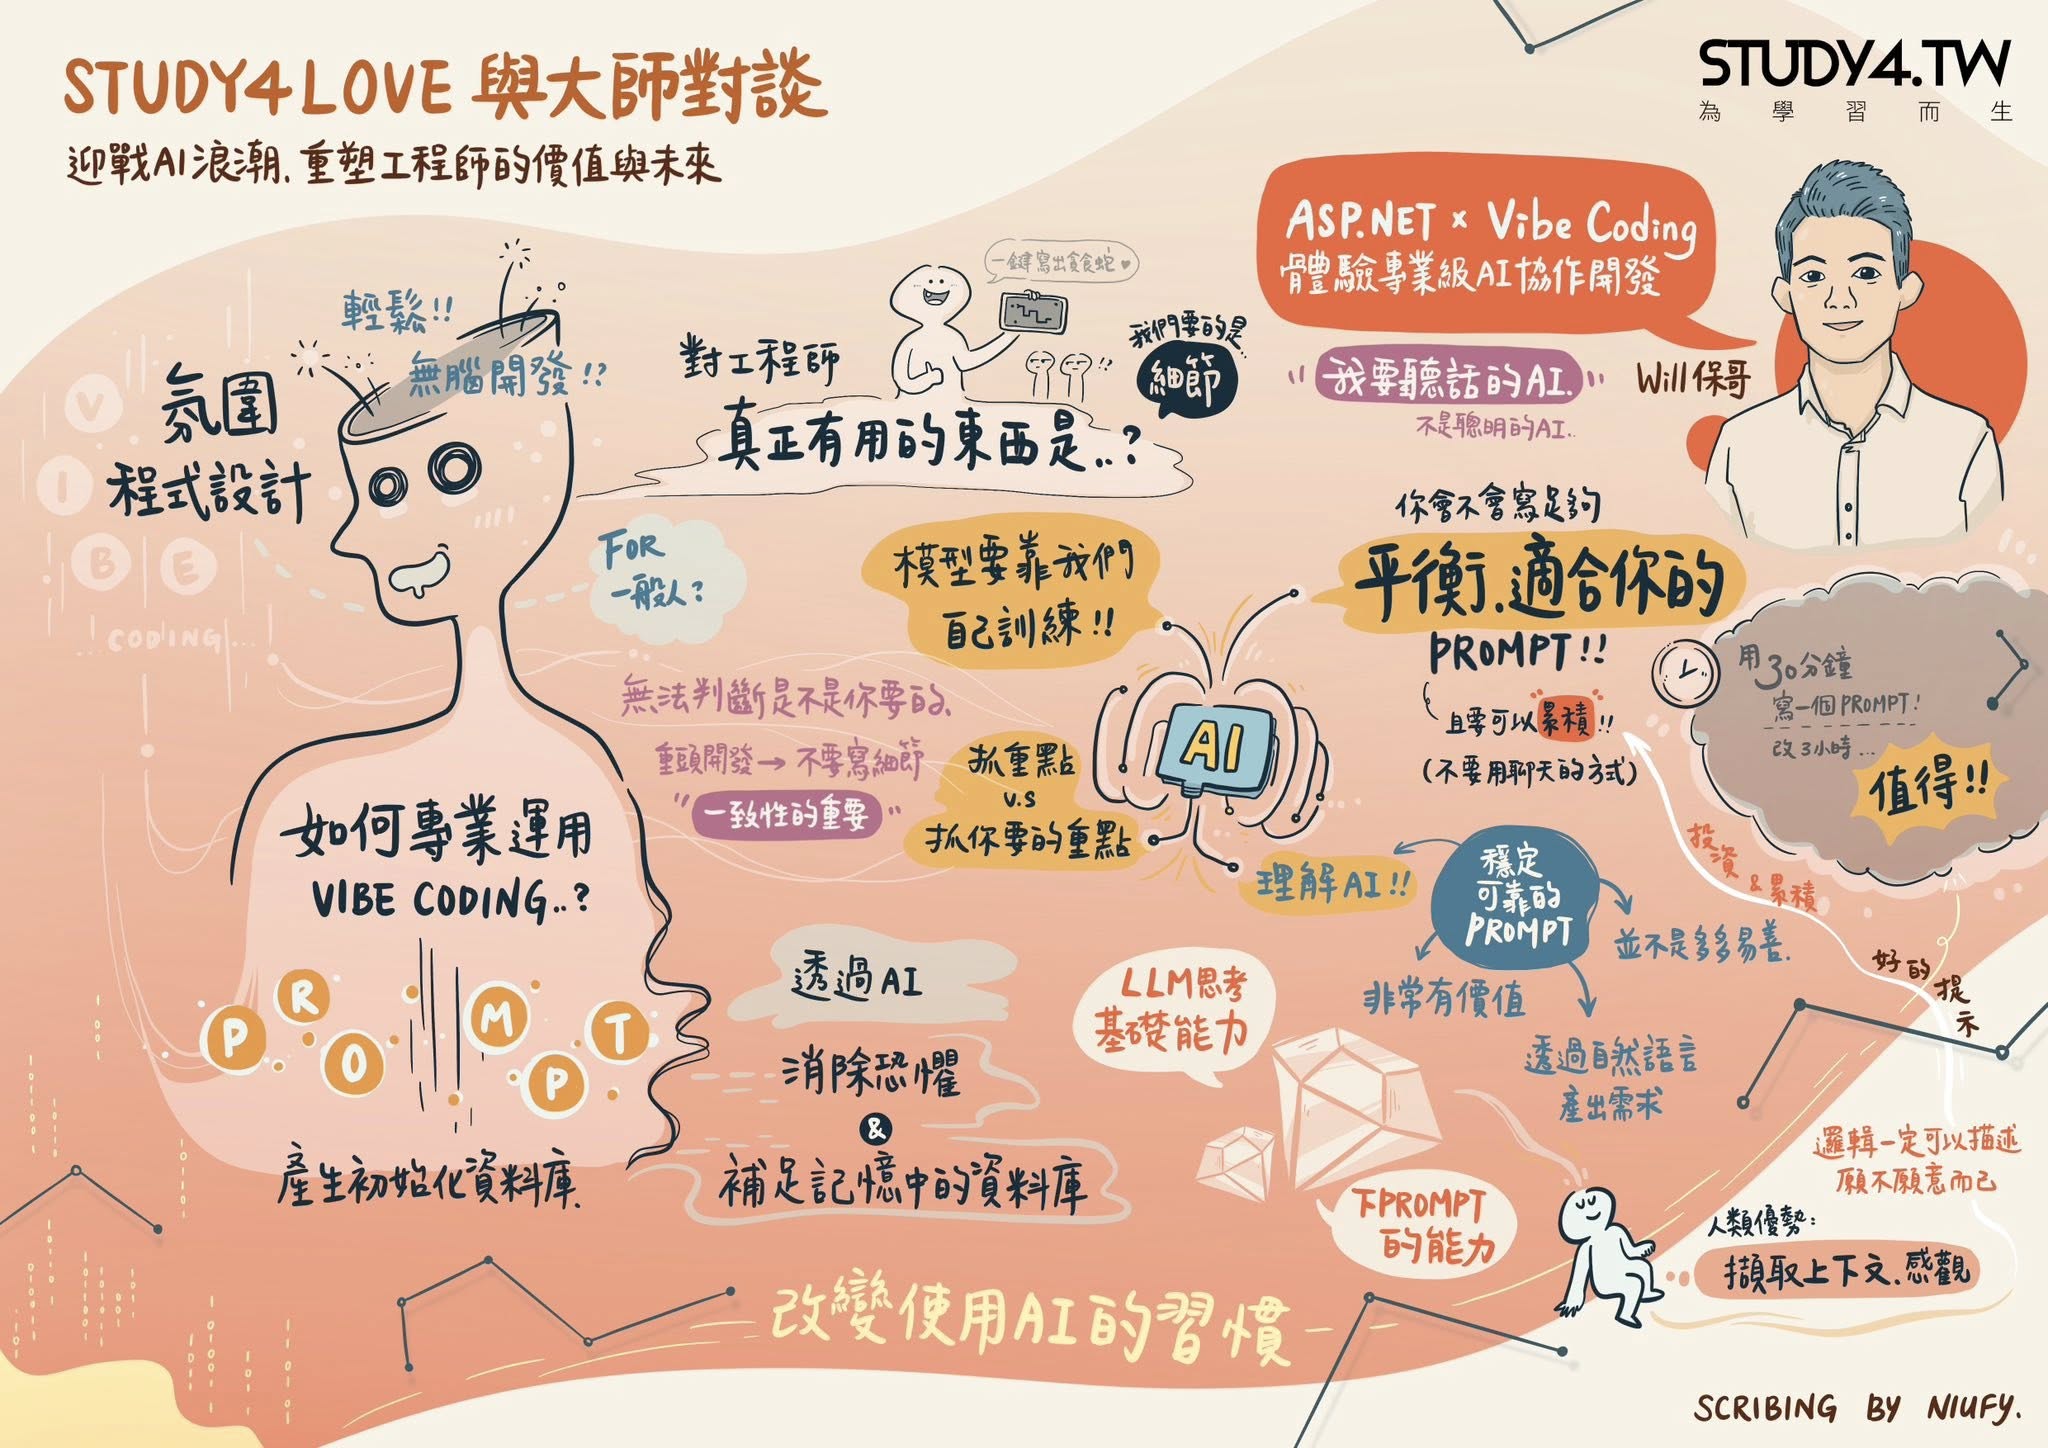 STUDY4LOVE 與大師對談
迎戰AI浪潮.重塑工程師的價值與未來
STUDY4.TW
為學習而生
ASP.NET × Vibe Coding
體驗專業級AI協作開發
Will 保哥
"我要聽話的AI."
不是聰明的AI..
V
I
B
E
CODING...
氛圍
程式設計
輕鬆!!
無腦開發!?
一鍵寫出貪食蛇♥
對工程師
真正有用的東西是..?
!?
我們要的是..
細節
FOR
一般人?
無法判斷是不是你要的.
重頭開發→不要寫細節
"一致性的重要"
模型要靠我們
自己訓練!!
抓重點
V.S
抓你要的重點
AI
你會不會寫足夠
平衡.適合你的
PROMPT!!
且要可以累積!!
(不要用聊天的方式)
用30分鐘
寫一個PROMPT!
改3小時...
值得!!
投資&累積
好的提示
理解AI!!
穩定
可靠的
PROMPT
並不是多多易善.
非常有價值
透過自然語言
產出需求
如何專業運用
VIBE CODING..?
PROMPT
產生初始化資料庫.
透過AI
消除恐懼
&
補足記憶中的資料庫
LLM思考
基礎能力
下PROMPT
的能力
邏輯一定可以描述
願不願意而已
人類優勢:
擷取上下文.感觀
改變使用AI的習慣
SCRIBING BY NIUFY.